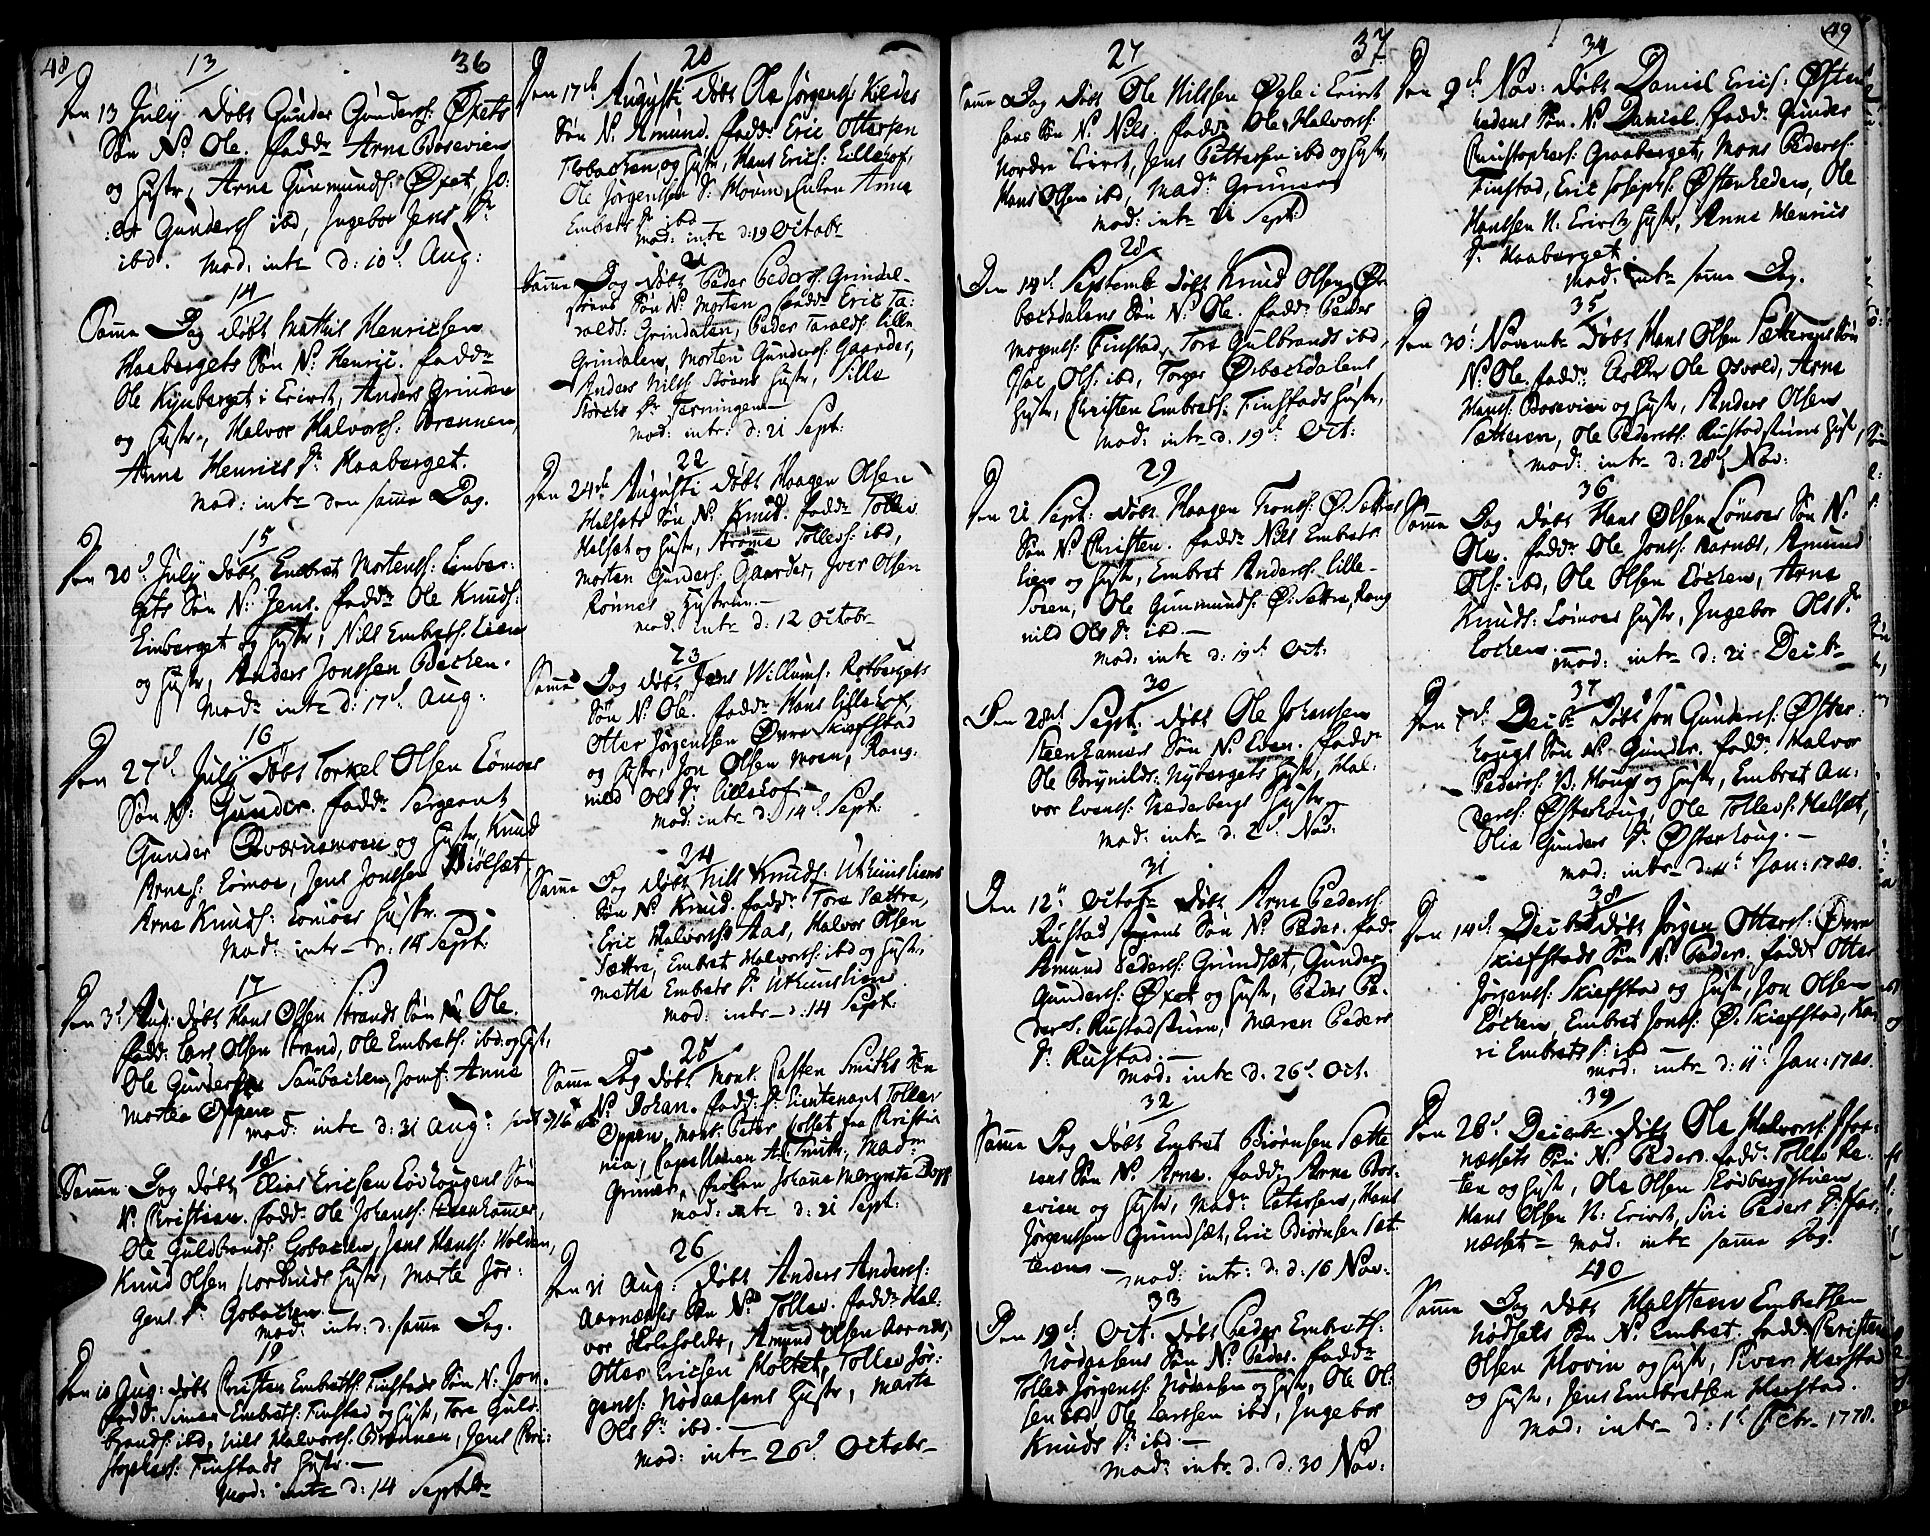 48
13
36
Den 13 July døbt Gunder Gunders: Øxets
Søn N: Ole. fadd: Arne Bosevien
og Hustr, Arne Gunmunds: Øxet, Jo:
Gunders ibd, Ingebor Jens Dr
ibd. Mod: intr d: 10d Aug:
14
Samme Dag døbt Mathis Henricsen
Haabergets Søn N: Henric. fadd:
Ole Kynberget i Elvert, Anders Grinden
og Hustr, Halvor Halvors: Brennen,
Anne Henrics Dr Haaberget.
Mod: intr den samme Dag.
15
Den 20d July døbt Embret Mortens: Einber-
gets Søn N: Jens. fadd: Ole Knuds:
Einberget og Hustr, Nils Embrets: Lien
og Hustr, Anders Jonsen Backen.
Mod: intr d: 17d Aug:
16
Den 27d July døbt Torkel Olsen Lømoes
Søn N: Gunder. fadd: Sergeant
Gunder Qværnemoen og Hustr, Knud
Arnes: Lømoe, Jens Jonsen Biølset,
Arne Knuds: Lømoes Hustr.
Mod: intr d: 14 Sept:
17
Den 3d Aug: døbt Hans Olsen Strands Søn N: Ole.
fadd: Lars Olsen Strand, Ole Embrets: ibd og Hust,
Ole Gundersen Saubacken, Jomf: Anna
Mortea Oppen
Mod: intr d: 31 Aug:
18
Samme Dag døbt Elias Ericsen Lødlougens Søn
N: Christian. fadd: Ole Johans: Steenhammer,
Ole Guldbrands: Gobacken, Jens Hans: Wolden,
Knud Olsen Hornmoes Hustr, Marte Jør-
gens Dr Gobacken
Mod: intr: d: samme Dag.
19
Den 10 Aug: døbt Christen Embrets: Finstads Søn N: Jon.
fadd: Simen Embrets: Finstad og Hustr, Tore Guld-
brands: ibd, Nils Halvors: Brennen, Jens Chri-
stophers: Finstads Hustr.
Mod: intr d: 14 Septbr
20
Den 17d Augusti døbt Ole Jørgens: Kildes
Søn N: Amund. fadd: Eric Ottersen
Flobacken og Hustr, Hans Erics: Lillehof,
Ole Jørgensen S: Hovin, Guren Anna
Embrets Dr ibd
Mod: intr d: 19 Octobr
21
Samme Dag døbt Peder Peders: Grindal-
støens Søn N: Morten fadd: Eric Ta-
ralds: Grindalen, Peder Taralds: Lille
Grindalen, Morten Gunders: Gaarder,
Anders Nils: Støens Hustr, Sille
Størchs Dr Terningen
Mod: intr: d: 21 Sept:
22
Den 24d Augusti døbt Haagen Olsen
Halsets Søn N: Knud. fadd: Tollev
Halset og Hustr, Strømme Tollevs: ibd,
Morten Gunders: Gaarder, Iver Olsen
Rønnes Hustrun.
Mod: intr d: 12 Octobr
23
Samme Dag døbt Jens Willums: Rotbergets
Søn N: Ole. fadd: Hans Lillehof,
Otter Jørgensen Øvre Skiefstad
og Hustr, Jon Olsen Moen, Rang-
nild Ols Dr Lillehof
Mod: intr d: 14d Sept:
24
Samme Dag døbt Nils Knuds: Utkiinsliens
Søn N: Knud. fadd: Tore Sættre,
Eric Halvors: Aas, Halvor Olsen
Sættre, Embret Halvors: ibd og Hustr,
Mette Embrets Dr Utkiinslien
Mod: intr d: 14 Sept:
25
Samme Dag døbt Mons: Casten Smiths Søn
N: Johan. fadd: Hr Lieutenant Tollev
Oppen, Mons: Peter Collet fra Christia
nia, Capellanen A: Smith, Madm
Grüner, Frøken Johana Margreta
Mod: intr d: 21 Sept:
26
Den 31 Aug: døbt Anders Anders:
Aarnæsses Søn N: Tollev. fadd: Hal-
vor Skoleholder, Amund Olsen Aarnæs,
Otter Ericsen Holtet, Tollev Jør-
gens: Nødaasens Hustr, Marte
Ols Dr ibd.
Mod: intr 26d Octobr
27
37
Samme Dag døbt Ole Nilssen Øgle i Elvert
hans Søn N: Nils. fadd: Ole Halvors:
Nordre Elvert, Jens Pettersen ibd og Hustr,
Hans Olsen ibd, Madm Grüners
Mod: intr 21 Sept:
28
Den 14d Septemb: døbt Knud Olsen Ør
backdalens Søn N: Ole. fadd: Peder
Mogens: Finstad, Tore Gulbrands ibd,
Joe Ols: ibd, Torger Ørbackdalens
Hustr, Christen Embrets: Finstads Hustr,
Mod: intr d: 19d Oct:
29
Den 21 Sept: døbt Haagen Tronds: Ø: Sættres
Søn N: Christen. fadd: Nils Embrets:
Lien og Hustr, Embret Anders: Lille-
Moen, Ole Gunmunds: Ø: Sættre, Rang
nild Ols Dr ibd.
Mod: intr d: 19d Oct:
30
Den 28d Sept: døbt Ole Johansen
Steenhamers Søn N: Even. fadd:
Ole Brynilds: Nybergets Hustr, Hal-
vor Evens: Nederbergs Hustr
Mod: intr d: 2d Nov:
31
Den 12d Octobr døbt Arne Peders:
Rustad stuens Søn N: Peder. fad:
Amund Peders: Grundset, Gunder
Gunders: Øxet og Hustr, Peder Pe-
ders: Rustadstuen, Maren Peders
Dr Rustad.
Mod: intr d: 26d Oct.
32
Samme Dag døbt Embret Biørnsen Sætte
rens Søn N: Arne. fadd: Arne Bos-
evien og Hustr, Madm Petersens, Hans
Jørgensen Grundset, Eric Biørnsen Sæt-
teren
Mod: intr: d: 16 Nov:
33
Den 19d Oct: døbt Peder Embrets:
Nødaasens Søn N: Peder. fadd:
Tollev Jørgens: Nødaasen og Hustr, Ole Ol-
sen ibd, Ole Larssen ibd, Ingebor
Knuds Dr ibd.
Mod: intr d. d. 30 Nov:
49
34
Den 9d Nov: døbt Daniel Erics: Østen
hedens Søn N: Daniel. fadd: Gunder
Christophers: Graaberget, Mons Peders:
Finstad, Eric Josephs: Østenheden, Ole
Hansen N: Elverts Hustr, Anne Henrics
Dr Haaberget
Mod: intr samme Dag.
35
Den 30d Novembr døbt Hans Olsen Sætterens Søn
N: Ole. fadd: Ole Osvold, Arne
Hans: Bosevien og Hustr, Anders Olsen
Sætteren, Ole Peders: Rustadstuens Hust,
Mod: intr d: 28d Nov:
36
Samme Dag døbt Hans Olsen Lømoes Søn N:
Ole. fadd: Ole Jons: Aarnæs, Amund
Ols: ibd, Ole Olsen Løcken, Arne
Knuds: Lømoes Hustr, Ingebor Ols Dr
Løcken.
Mod: intr d: 21 Decbr
37
Den 7d Decbr døbt Jon Gunders: Øster-
hougs Søn N: Gunder. fadd: Halvor
Peders: V: Houg og Hustr, Embret An-
ders: Østerhoug, Ole Tollevs: Halset,
Olia Gunders Dr Østerhoug.
Mod: intr d: 11 Jan: 1780.
38
Den 14d Decbr døbt Jørgen Otters: Øvre
Skiefstads Søn N: Peder. fadd: Otter
Jørgens: Skiefstad og Hust, Jon Olsen
Løcken, Embret Jons: Ø: Skiefstad, Ka-
ri Embrets Dr ibd
Mod: intr d: 11 Jan: 1780.
39
Den 26d Decembr døbt Ole Halvors: Sfor-
næssets Søn N: Peder. fadd: Tollev Ra-
ten og Hust, Ole Olsen Skovbergstuen,
Hans Olsen N: Elvert, Siri Peders Dr Sfor-
næsset Mod: intr samme Dag.
40
Samme Dag døbt Halsteen Embretsen
Nødsets Søn N: Embret. fadd: Christen
Olsen Hovin og Hustr, Siver Harstad
og Hustr, Jens Embretsen Harstad.
Mod: intr d: 1d Febr. 1778.